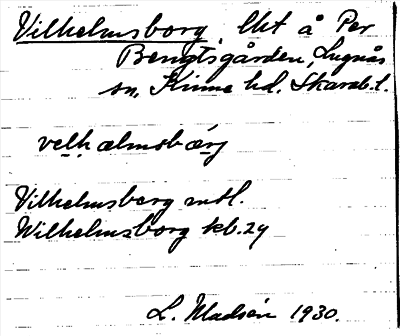 Vilhelmsborg, lht å Per
Bengtsgården, Lugnås
sn, Kinne hd. Skarab. l.
velhælmsbærj
Vilhelmsberg mtl.
Wilhelmsborg kb. 24
L. Madsén 1930.